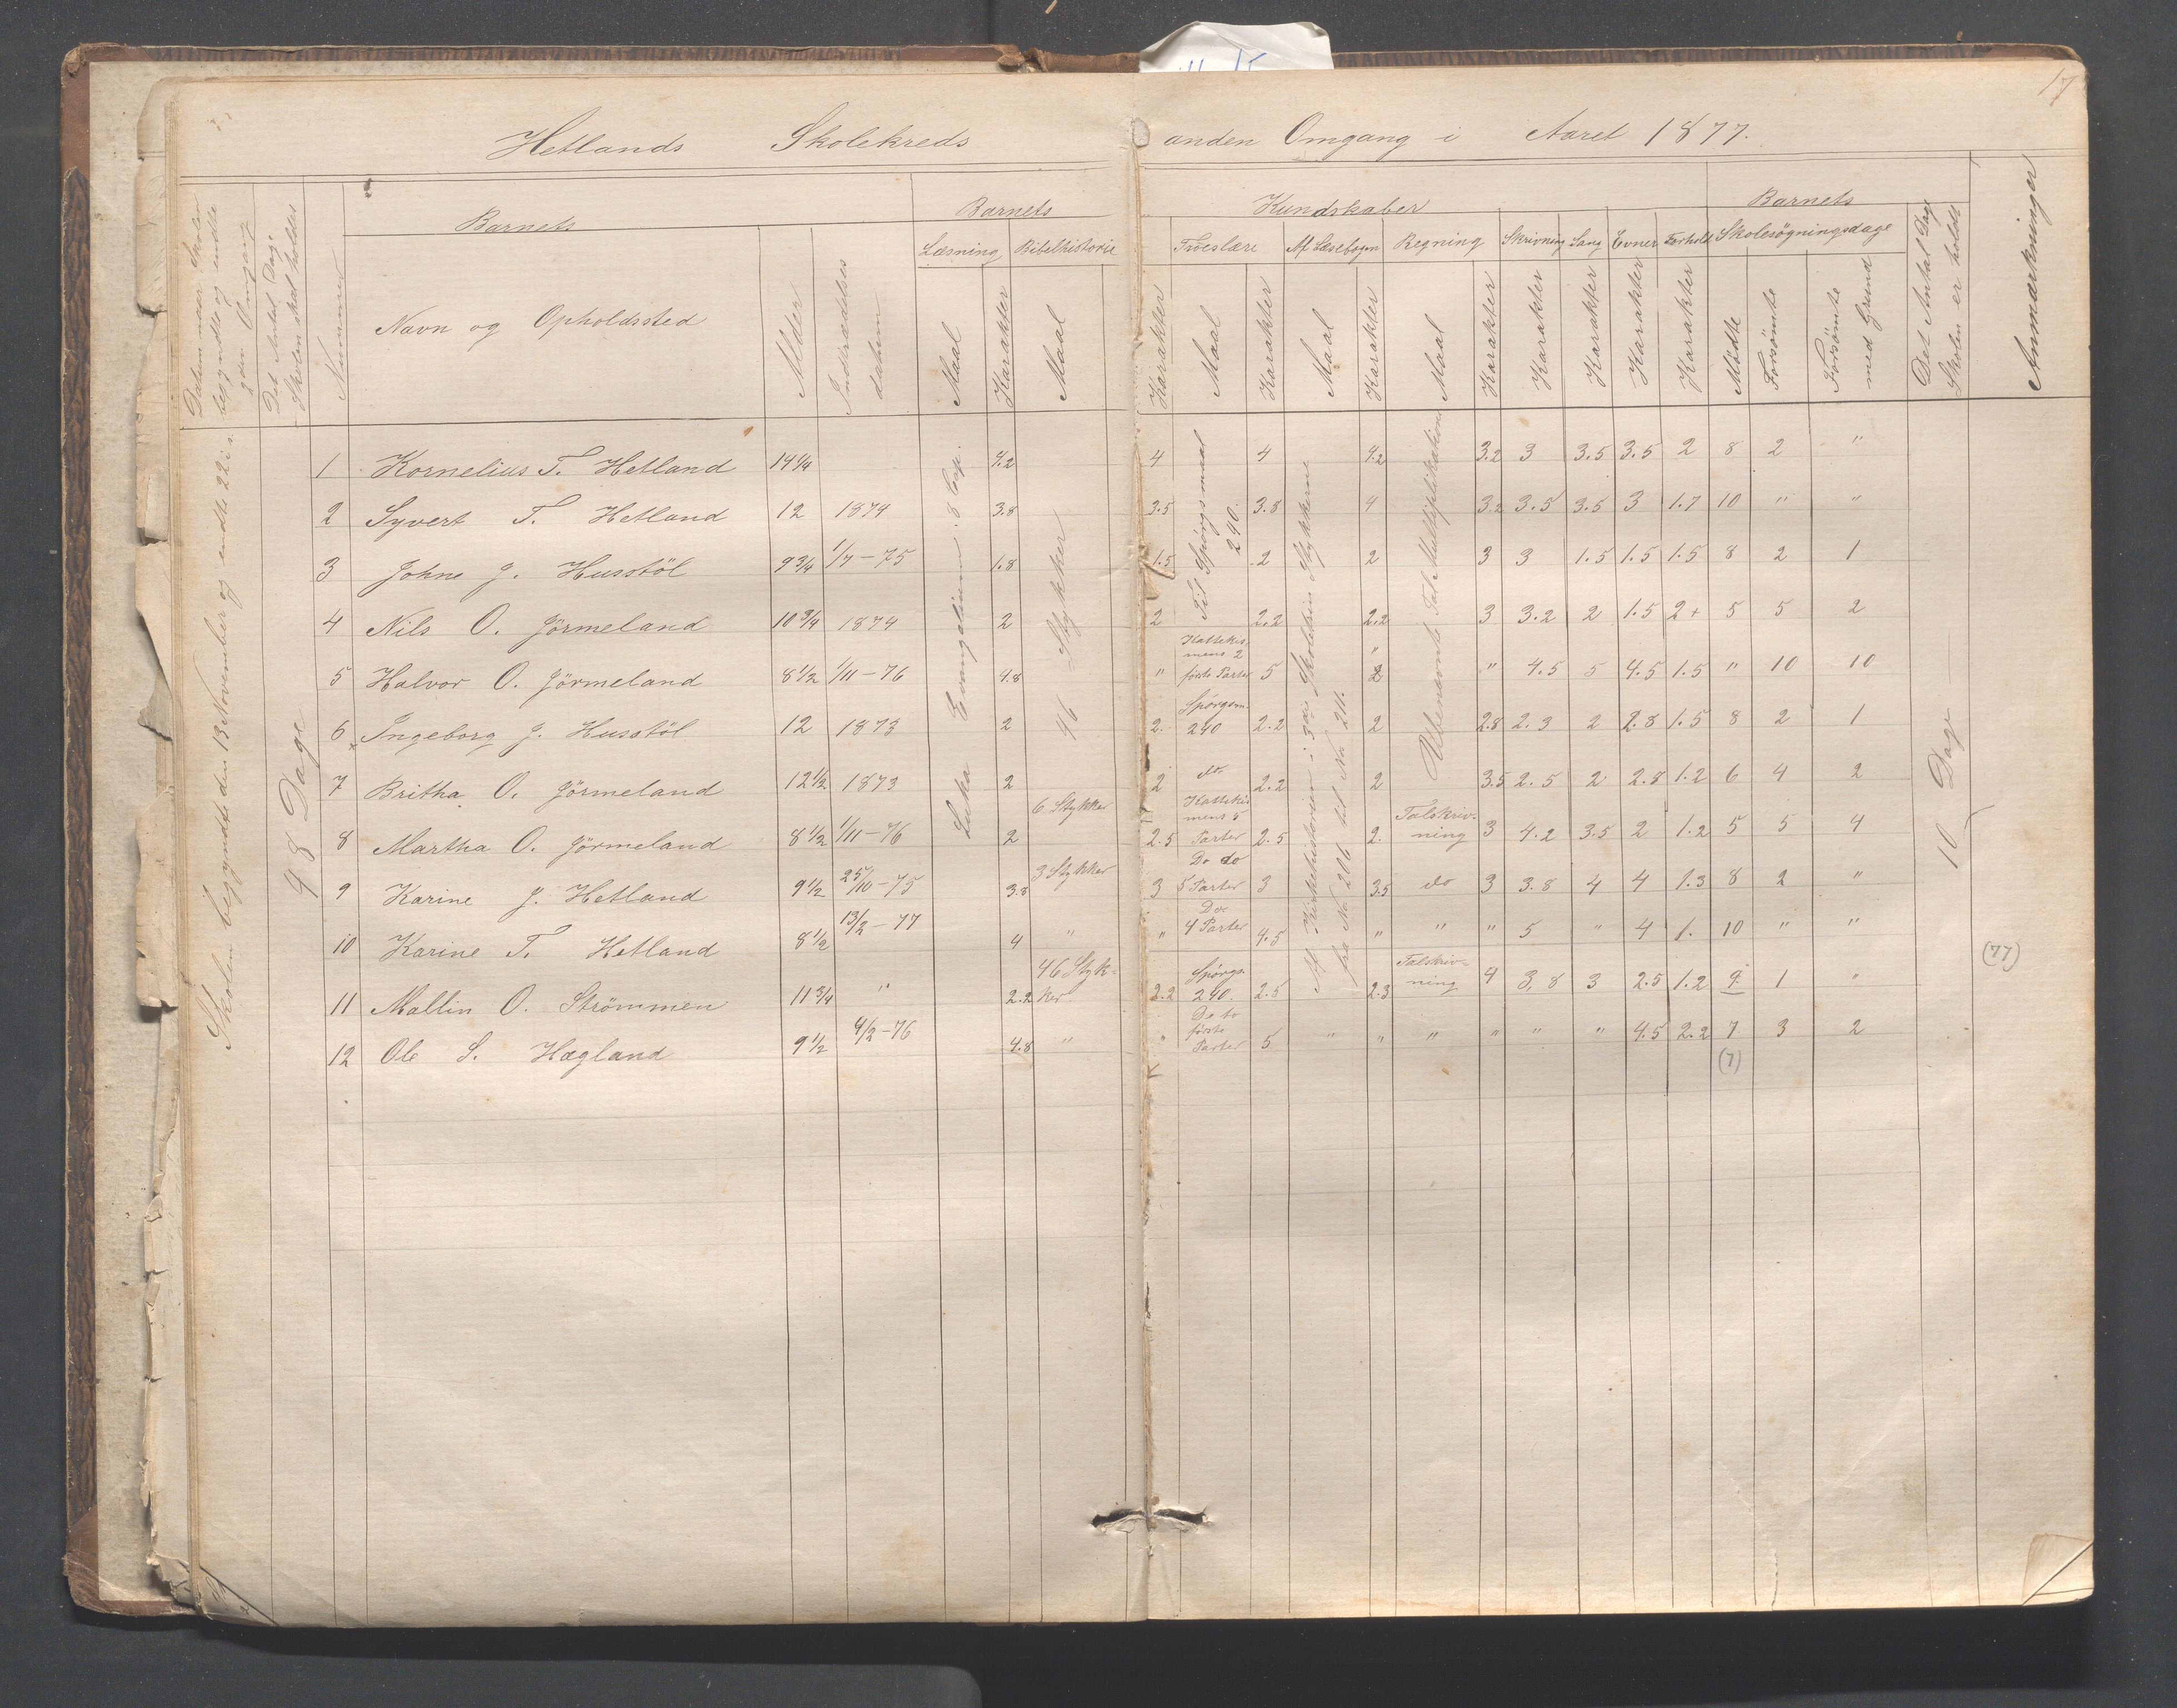 17
Hetlands Skolekreds anden Omgang i Aaret 1877.
Datum naar Skolen begyndte og endte
Det Antal Dage Skolen skal holdes
Nummer
Barnets
Navn og Opholdssted
Alder
Indtrædelses datum
Barnets Kundskaber
Læsning
Maal
Karakter
Bibelhistorie
Maal
Karakter
Troeslære
Maal
Karakter
Af Læsebogen
Maal
Karakter
Regning
Maal
Karakter
Skrivning
Karakter
Sang
Karakter
Evner
Karakter
Forhold
Karakter
Barnets Skolesøgningsdage
Mødte
Forsømte
Forsømte med Grund
Det Antal Dage Skolen er holdt
Anmærkninger
Skolen begyndte den 13 November og endte 22 i s.
98 Dage
Luka Evangelium 8 Cap.
46 Stykker
Til Spørgsmaal 240.
Af Kirkehistorien i 3die Skoletin Stykkerne
fra No 206 til No 211.
Ubenævnte Tal Multiplikation
10 Dage
1 Kornelius T. Hetland 14 1/4 4.2 4 4 4.2 3.2 3 3.5 3.5 2 8 2 "
2 Syvert T. Hetland 12 1874 3.8 3.5 3.8 4 3.2 3.5 3.5 3 1.7 10 " "
3 Johne J. Husstöl 9 3/4 1/7 - 75 1.8 1.5 2 2 3 3 1.5 1.5 1.5 8 2 1
4 Nils O. Jörmeland 10 3/4 1874 2 2 2.2 2.2 3 3.2 2 1.5 2+ 5 5 2
5 Halvor O. Jörmeland 8 1/2 1/11 - 76 4.8 " Kattekismens 2 første Parter 5 " 2 " 4.5 5 4.5 1.5 " 10 10
6 Ingeborg J. Husstöl 12 1873 2 2. Spørgsm. 240 2.2 2 2.8 2.3 2 2.8 1.5 8 2 1
7 Britha O. Jörmeland 12 1/2 1873 2 2 do 2.2 2 3.5 2.5 2 2.8 1.2 6 4 2
8 Martha O. Jörmeland 8 1/2 1/11 - 76 2 6 Stykker 2.5 Kattekismens 5 Parter 2.5 2. Talskrivning 3 4.2 3.5 2 1.2 5 5 4
9 Karine J. Hetland 9 1/2 25/10 - 75 3.8 3 Stykker 3 Do do 5 Parter 3 3.5 do 3 3.8 4 4 1.3 8 2 "
10 Karine T. Hetland 8 1/2 13/2 - 77 4 " " Do 4 Parter 4.5 " " " 5 " 4 1. 10 " "
11 Mallin O. Strömmen 11 3/4 " 2.2 46 Stykker 2.2 Spørgs. 240. 2.5 2.3 Talskrivning 4 3.8 3 2.5 1.2 9 1 "
12 Ole S. Hægland 9 1/2 4/2 - 76 4.8 " " Do to første Parter 5 " " " " " " 4.5 2.2 7 3 2
(77)
(7)